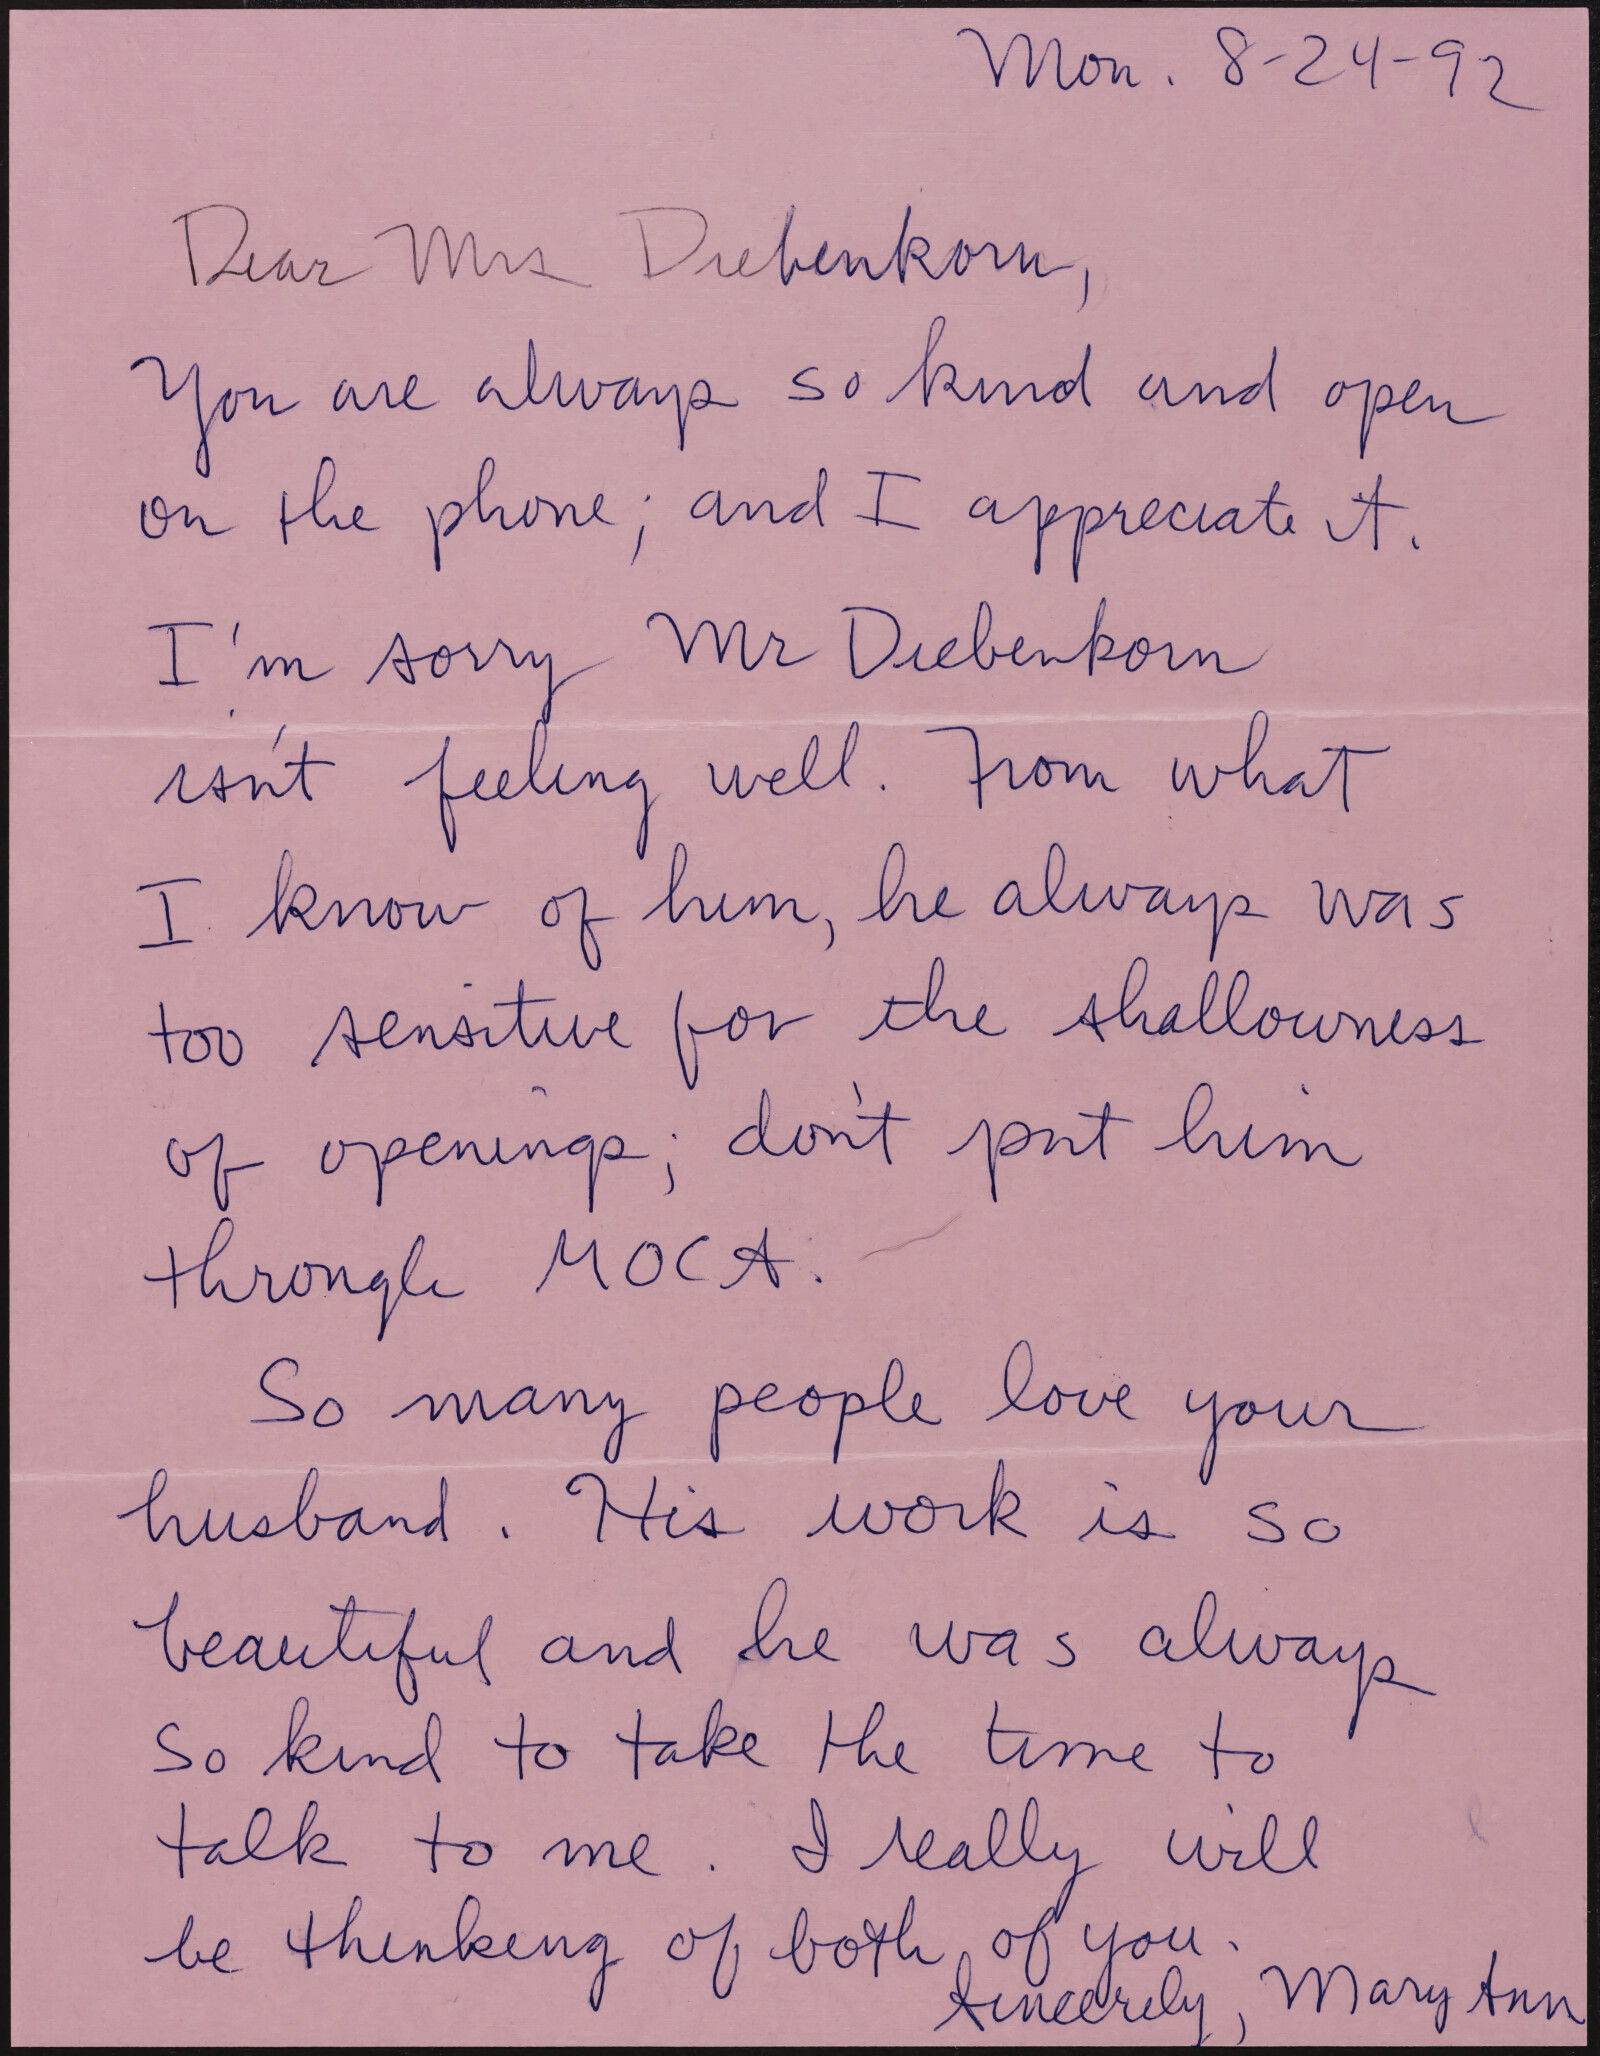 Mon. 8-24-92
Dear Mrs Diebenkorn,
You are always so kind and open
on the phone; and I appreciate it.
I'm sorry Mr Diebenkorn
isn't feeling well. From what
I know of him, he always was
too sensitive for the shallowness
of openings; don't put him
through MOCA.
So many people love your
husband. His work is so
beautiful and he was always
so kind to take the time to
talk to me. I really will
be thinking of both of you.
Sincerely, Mary Ann